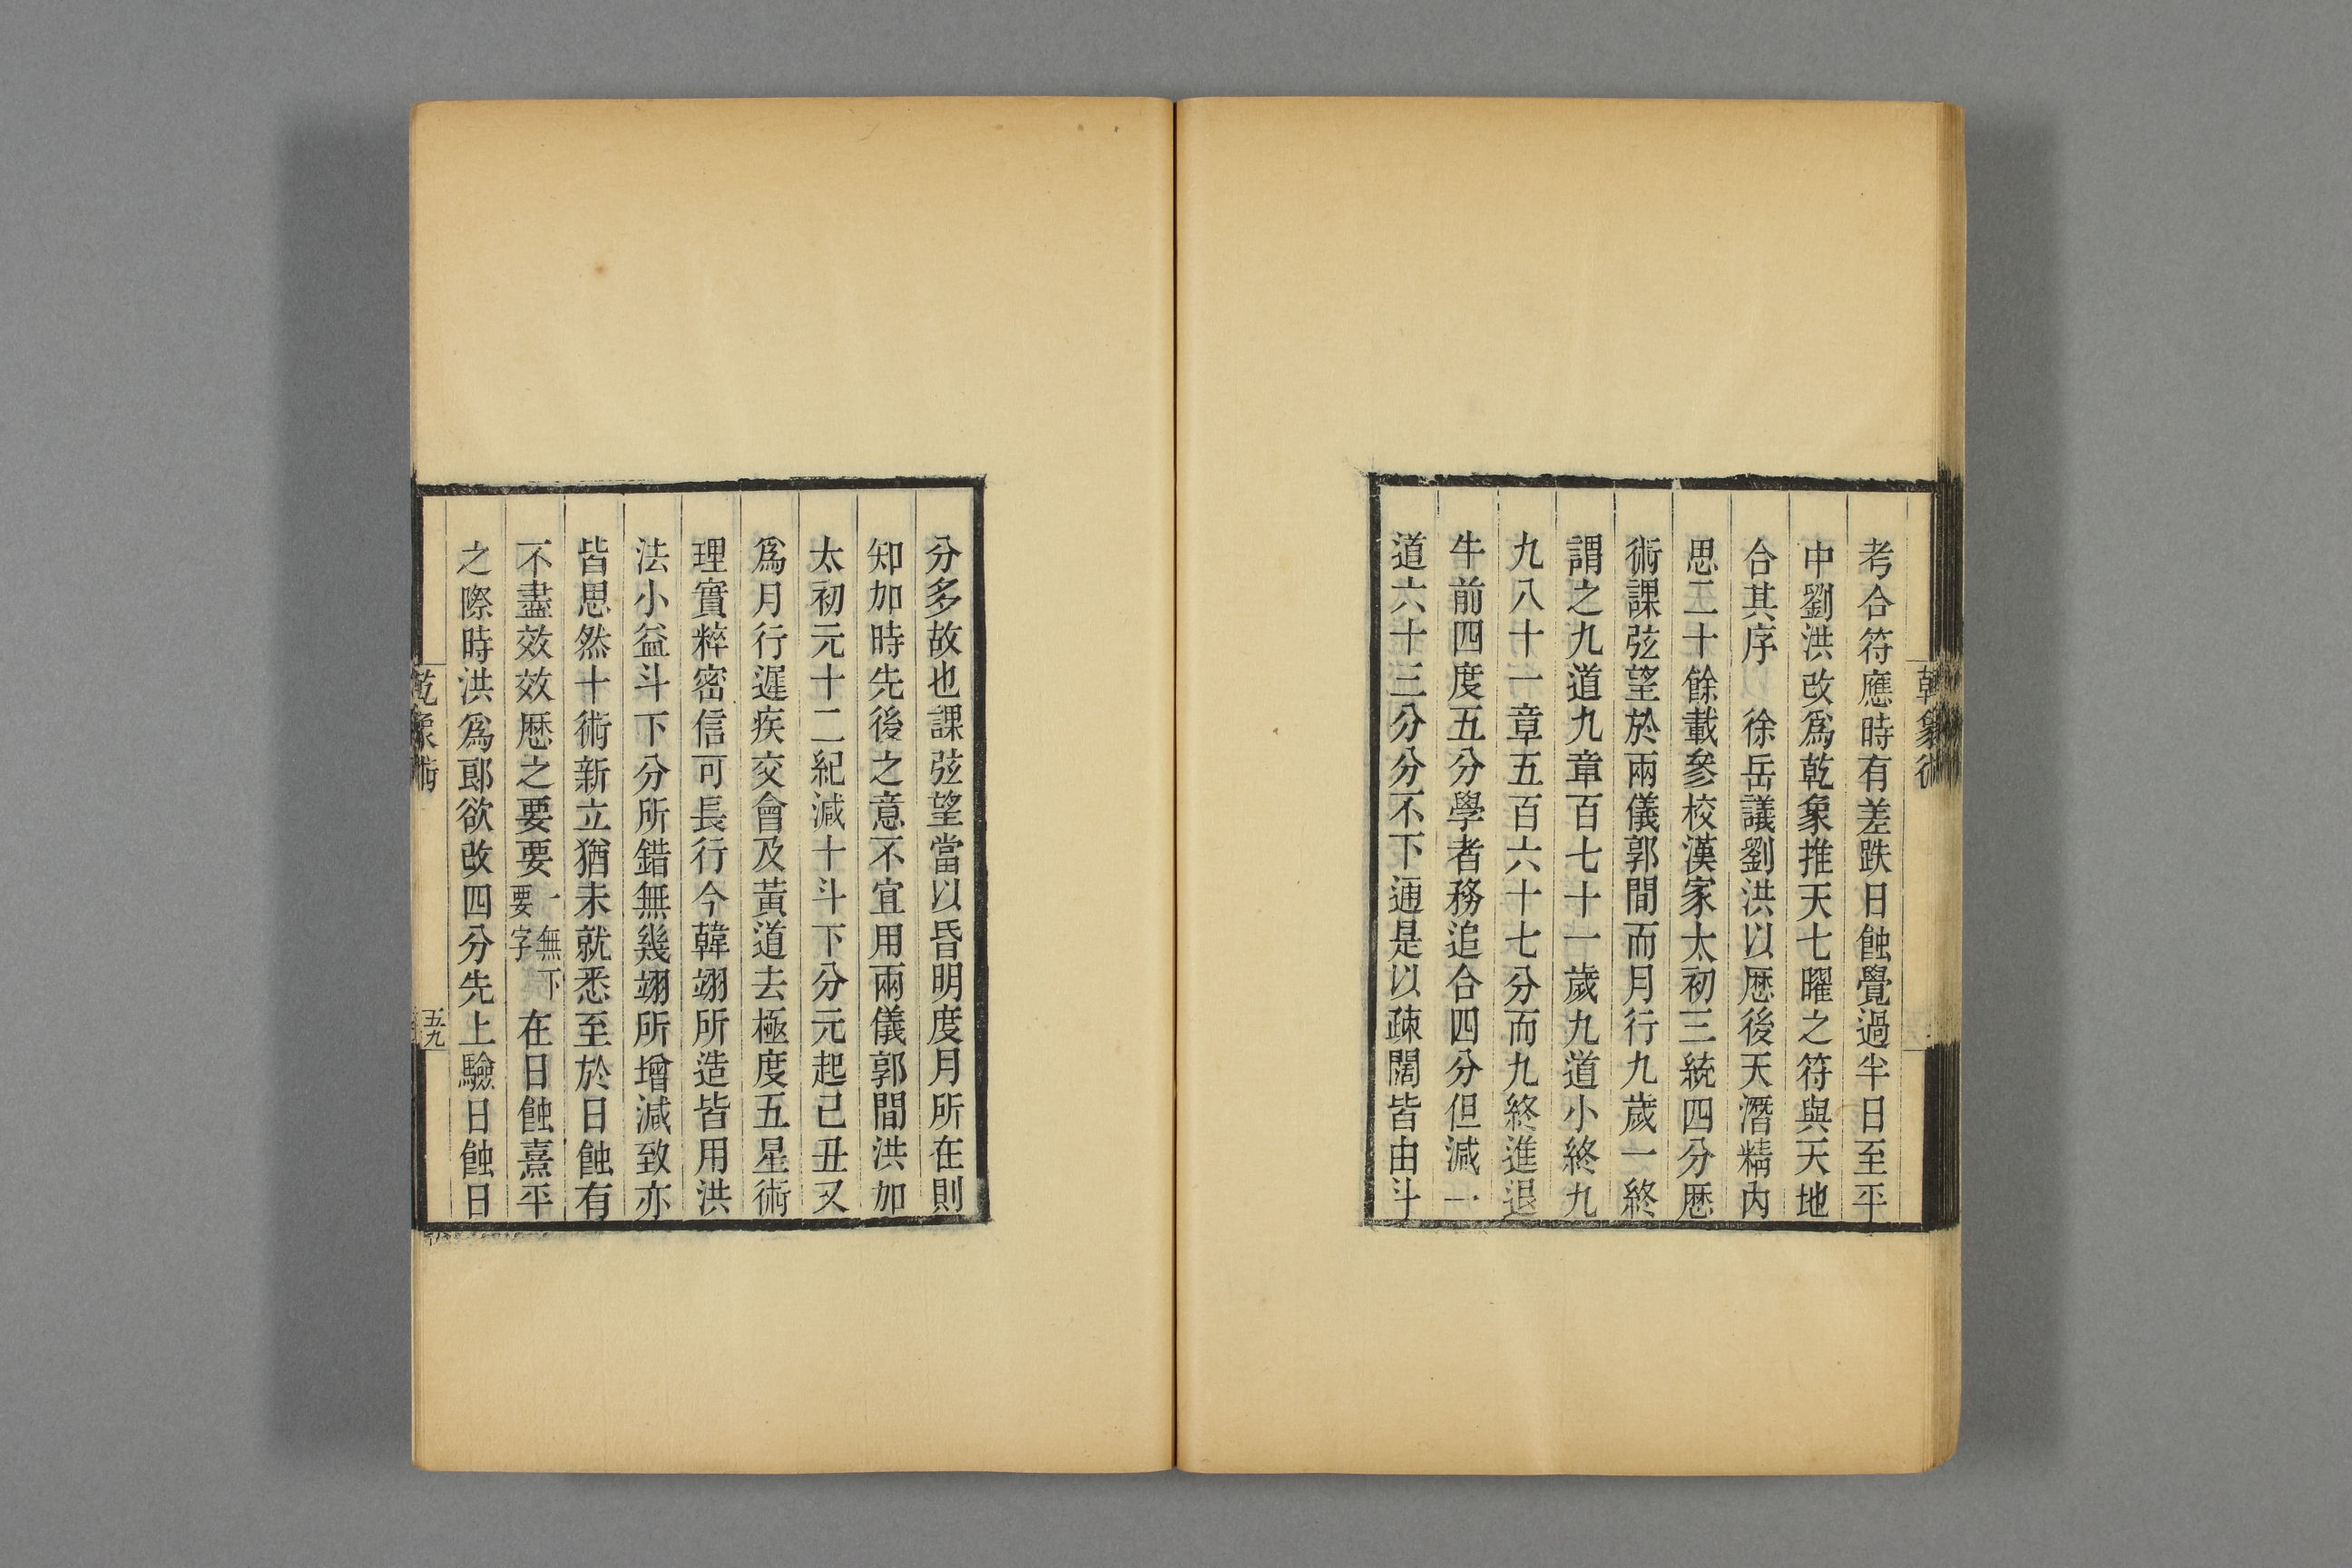 考合符應時有差跌日蝕覺過半日至平
中劉洪改爲乾象推天七曜之符與天地
合其序　徐岳議劉洪以歴後天潛精內
思二十餘載參校漢家太初三統四分歴
術課弦望於兩儀郭間而月行九歲一終
謂之九道九章百七十一歲九道小終九
九八十一章五百六十七分而九終進退
牛前四度五分學者務追合四分但減一
道六十三分分不下通是以疎闊皆由斗
分多故也課弦望當以昏明度月所在則
知加時先後之意不宜用兩儀郭間洪加
太初元十二紀減十斗下分元起己丑又
爲月行遲疾交會及黃道去極度五星術
理實粹密信可長行今韓翊所造皆用洪
法小益斗下分所錯無幾翊所增減致亦
皆思然十術新立猶未就悉至於日蝕有
不盡效效歴之要要一無下要字在日蝕熹平
之際時洪爲郎欲改四分先上驗日蝕日
乾象術
五九